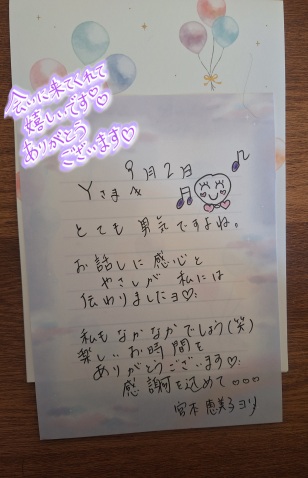 会いに来てくれて
嬉しいです♡
ありがとう
ございます♡
9月2日
Yさま
とても 勇気ですよね。
お話しに感心と
やさしが 私には
伝わりましたョ♡
私もなかなかでしょう(笑)
楽しいお時間を
ありがとうございます♡
感謝を込めて○○○
宮本恵美子ヨリ